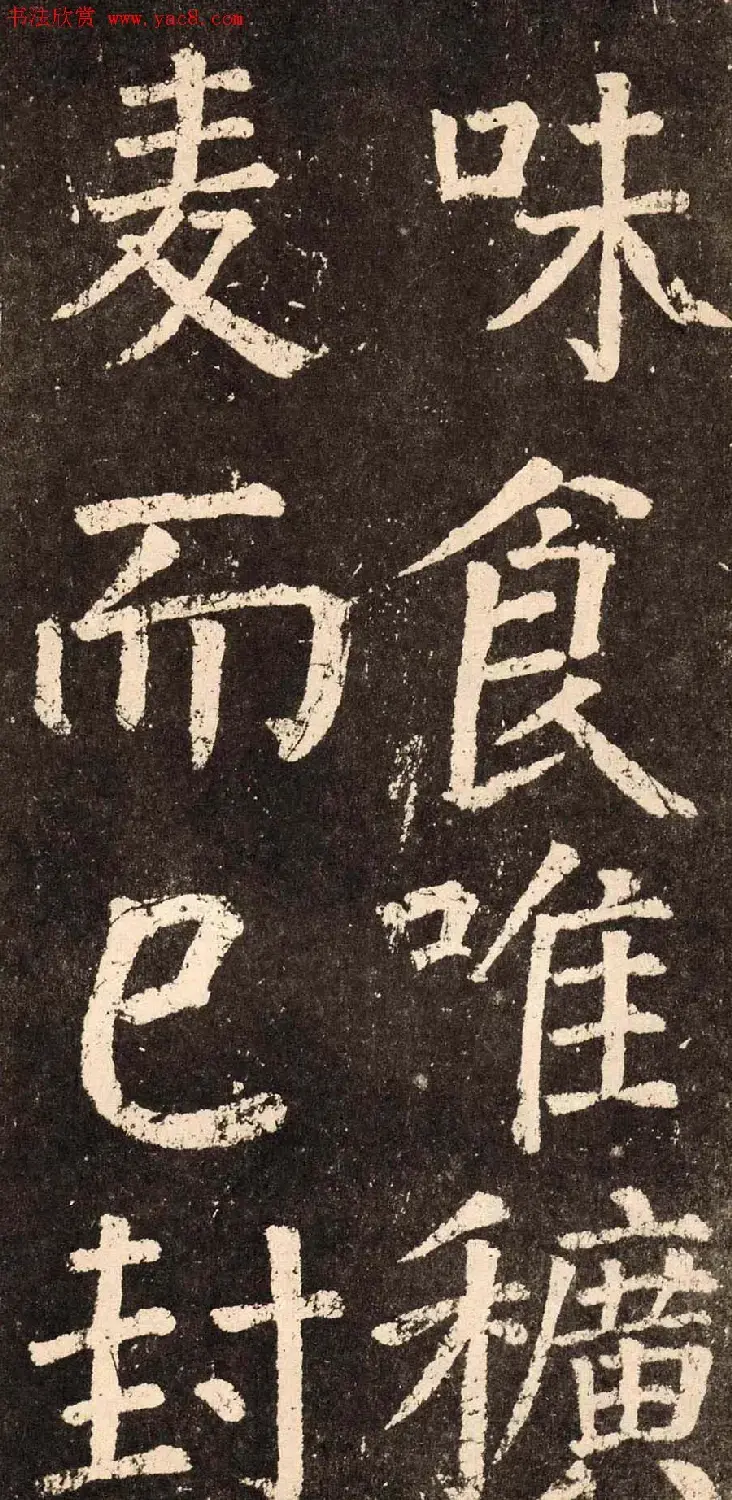 书法欣赏 www.yac8.com
味食唯穬
麦而已封